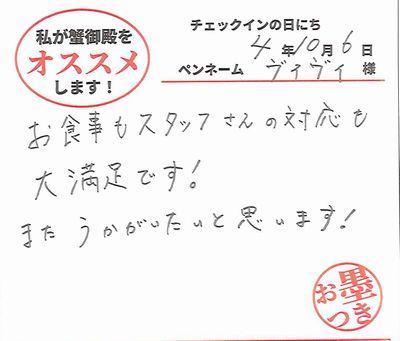 私が蟹御殿を
オススメ
します！
チェックインの日にち
4年10月6日
ペンネーム ヴィヴィ 様
お食事もスタッフさんの対応も
大満足です!
またうかがいたいと思います!
墨
おつき